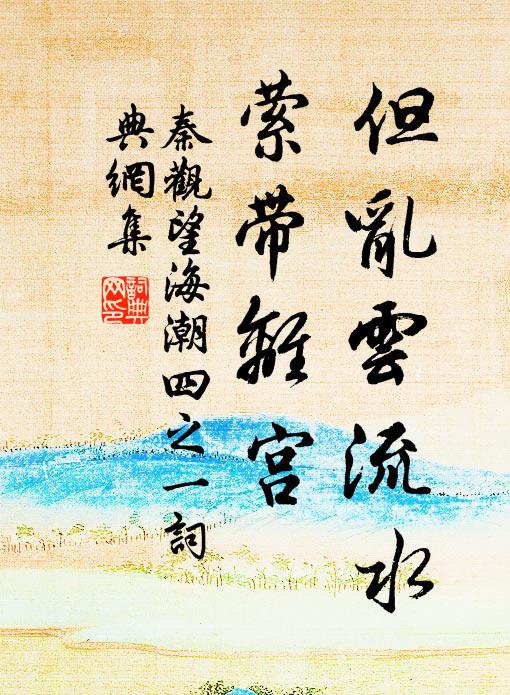 但亂雲流水
萦帶離宮
秦觀望海潮四之一詞
典網集
詞典
网印